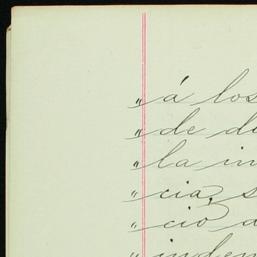 „ á los
„ de d
„ la in
„ cia, s
„ cio d
„ indem